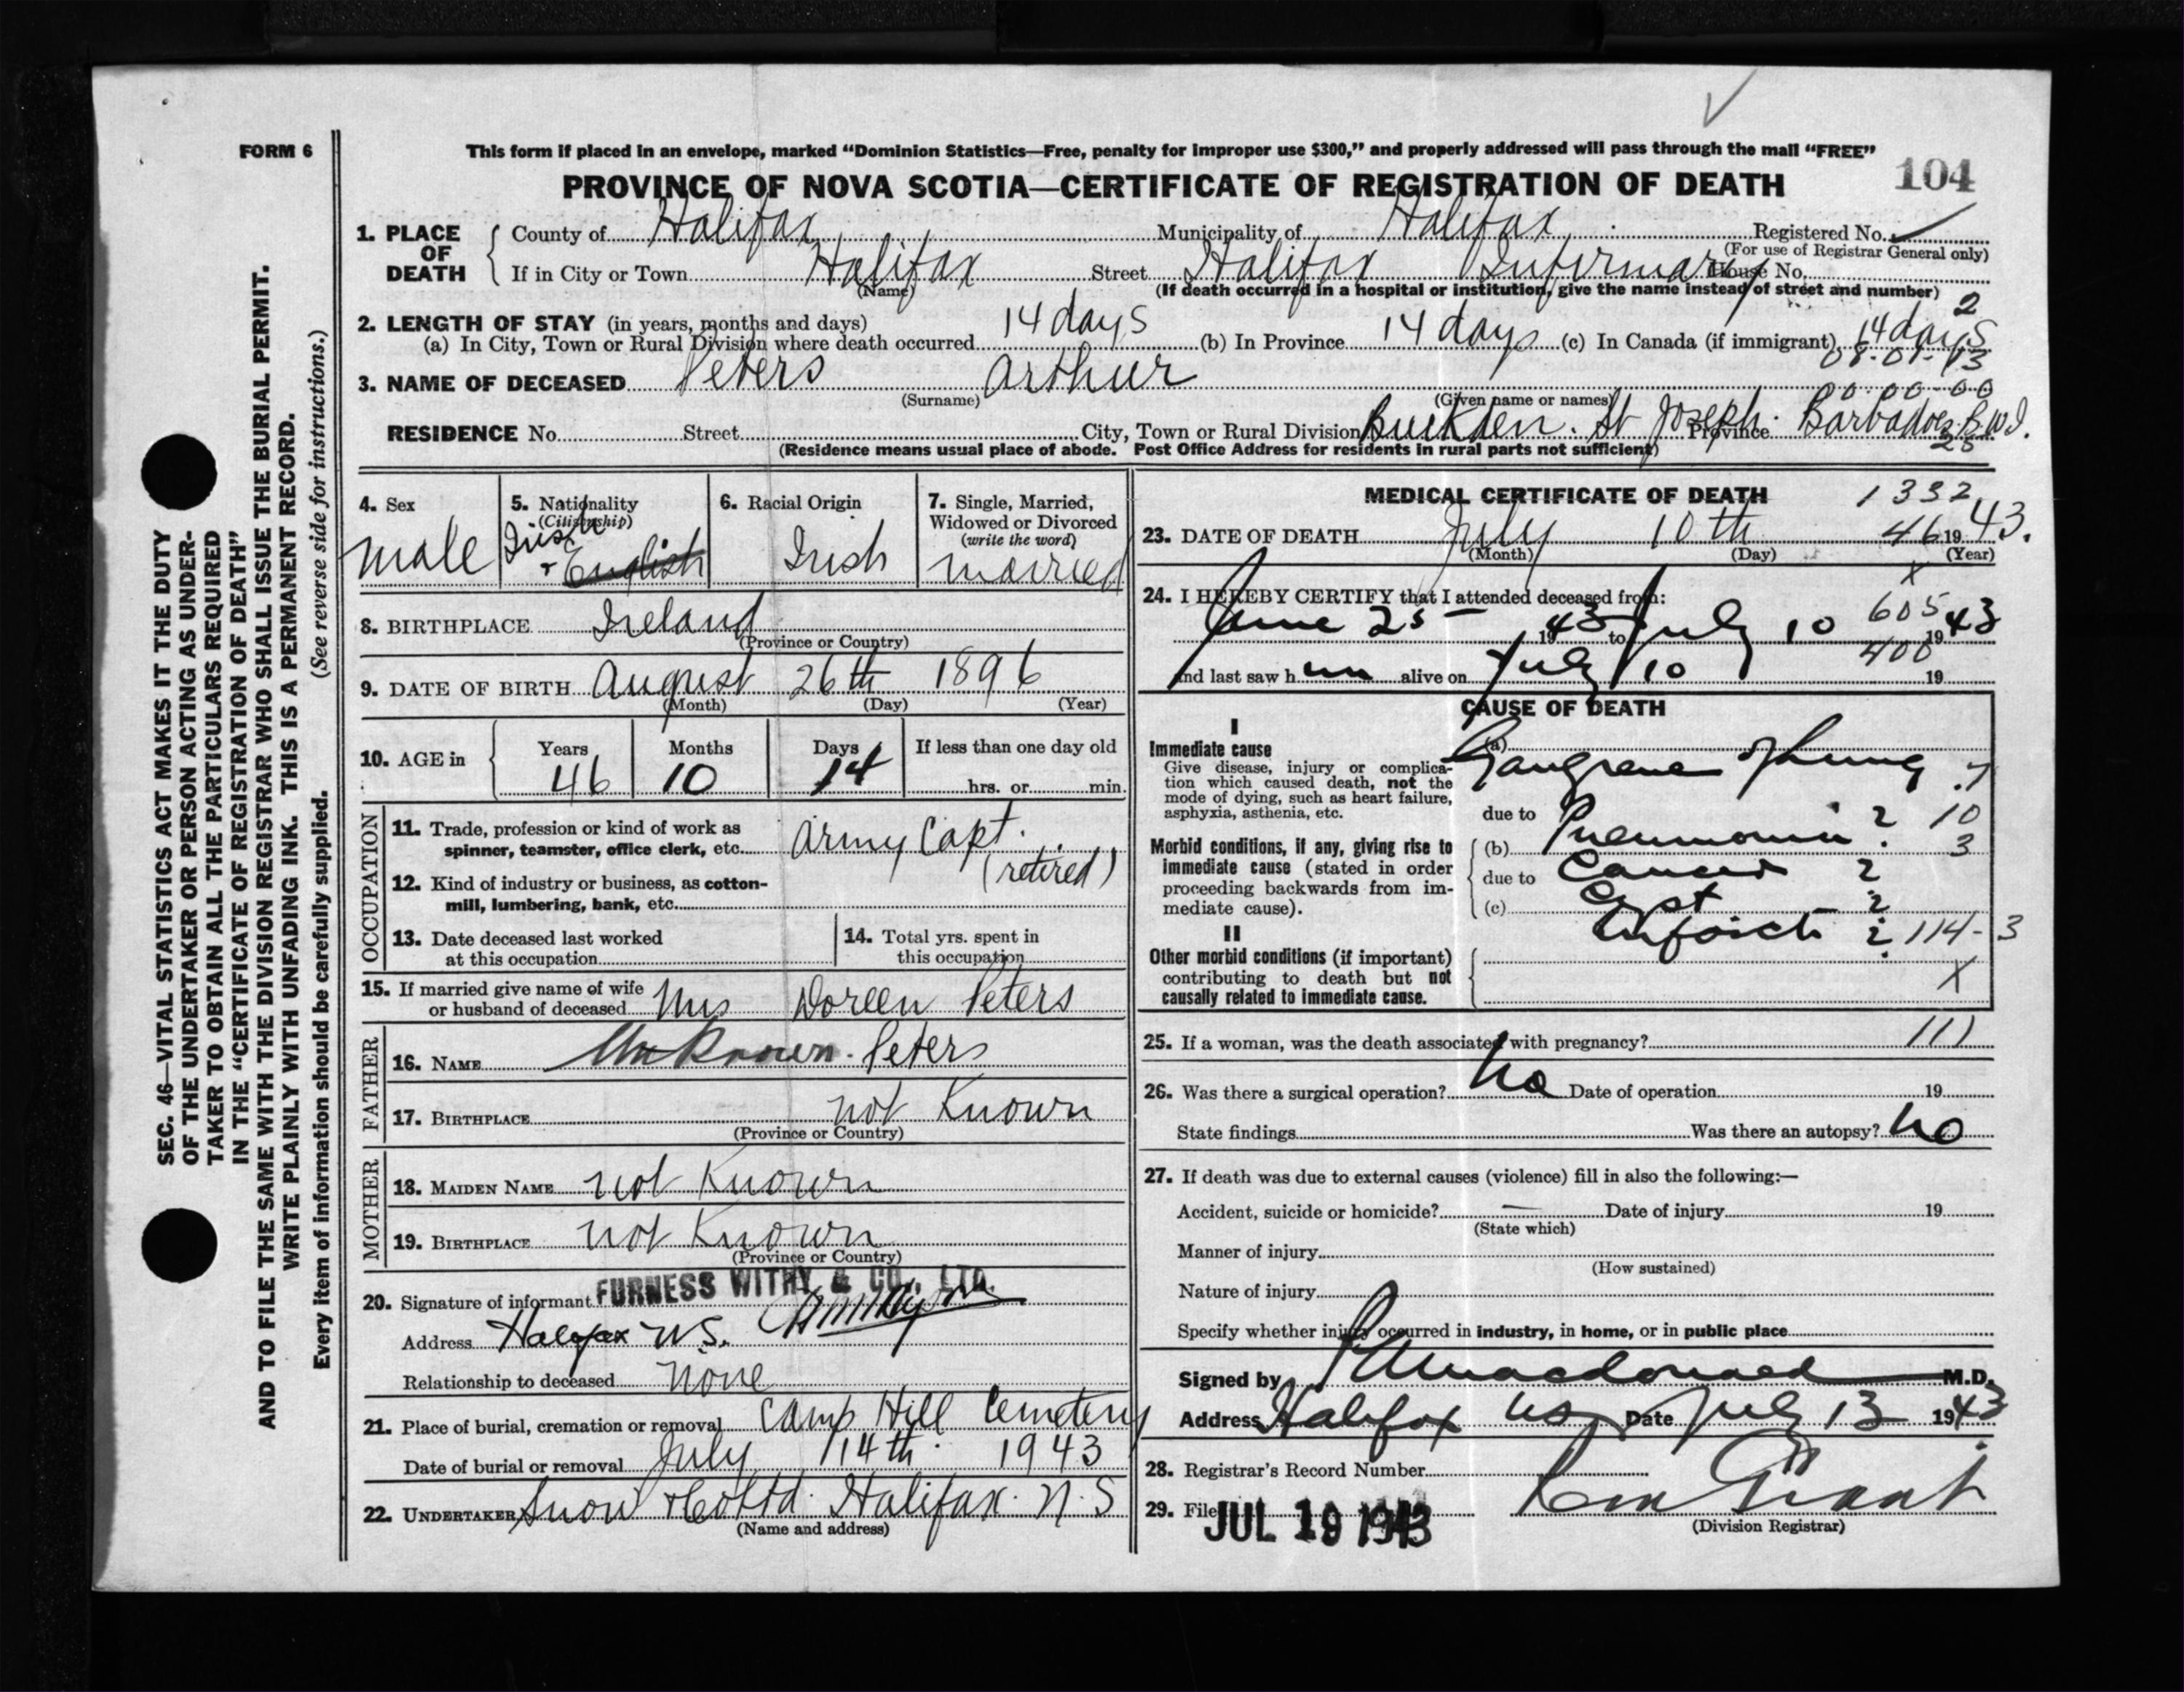 FORM 6
This form if placed in an envelope, marked "Dominion Statistics—Free, penalty for improper use $300," and properly addressed will pass through the mail "FREE"
PROVINCE OF NOVA SCOTIA—CERTIFICATE OF REGISTRATION OF DEATH
104
1. PLACE OF DEATH
County of Halifax Municipality of Halifax Registered No.
(For use of Registrar General only)
If in City or Town Halifax Street Halifax Infirmary House No.
(Name) (If death occurred in a hospital or institution, give the name instead of street and number)
2
2. LENGTH OF STAY (in years, months and days)
(a) In City, Town or Rural Division where death occurred 14 days (b) In Province 14 days (c) In Canada (if immigrant) 14 days
08-01-13
3. NAME OF DECEASED Peters Arthur
(Surname) (Given name or names)
00-00-00
RESIDENCE No. Street City, Town or Rural Division Buckden. St Joseph. Province Barbadoes B.W.I.
(Residence means usual place of abode. Post Office Address for residents in rural parts not sufficient)
28
4. Sex
male
5. Nationality
(Citizenship)
Irish
English
6. Racial Origin
Irish
7. Single, Married,
Widowed or Divorced
(write the word)
married
8. BIRTHPLACE Ireland
(Province or Country)
9. DATE OF BIRTH August 26th 1896
(Month) (Day) (Year)
10. AGE in
Years Months Days If less than one day old
46 10 14 hrs. or min.
OCCUPATION
11. Trade, profession or kind of work as
spinner, teamster, office clerk, etc. Army Capt.
(retired)
12. Kind of industry or business, as cotton-
mill, lumbering, bank, etc.
13. Date deceased last worked
at this occupation
14. Total yrs. spent in
this occupation
15. If married give name of wife
or husband of deceased Mrs Doreen Peters
FATHER
16. NAME Unknown. Peters
17. BIRTHPLACE not Known
(Province or Country)
MOTHER
18. MAIDEN NAME not Known
19. BIRTHPLACE not Known
(Province or Country)
20. Signature of informant FURNESS WITHY & CO. LTD.
Address Halifax N.S.
Relationship to deceased none
21. Place of burial, cremation or removal Camp Hill Cemetery
Date of burial or removal July 14th. 1943
22. UNDERTAKER Snow & Co Ltd. Halifax. N.S
(Name and address)
MEDICAL CERTIFICATE OF DEATH
1332
23. DATE OF DEATH July 10th 46 1943.
(Month) (Day) (Year)
X
24. I HEREBY CERTIFY that I attended deceased from:
605
June 25 1943 to July 10 1943
400
and last saw h im alive on July 10 19
CAUSE OF DEATH
I
Immediate cause
Give disease, injury or complica-
tion which caused death, not the
mode of dying, such as heart failure,
asphyxia, asthenia, etc.
(a) Gangrene of lung 7
due to
(b) Pneumonia ? 10
3
Morbid conditions, if any, giving rise to
immediate cause (stated in order
proceeding backwards from im-
mediate cause).
due to Cancer ?
(c) Cyst ?
Infarct ? 114-3
II
Other morbid conditions (if important)
contributing to death but not
causally related to immediate cause.
X
25. If a woman, was the death associated with pregnancy? 111
26. Was there a surgical operation? no Date of operation 19
State findings Was there an autopsy? no
27. If death was due to external causes (violence) fill in also the following:—
Accident, suicide or homicide? — Date of injury 19
(State which)
Manner of injury
(How sustained)
Nature of injury
Specify whether injury occurred in industry, in home, or in public place
Signed by Macdonald M.D.
Address Halifax NS Date July 13 1943
28. Registrar's Record Number
29. Filed JUL 19 1943
Grant
(Division Registrar)
SEC. 46—VITAL STATISTICS ACT MAKES IT THE DUTY
OF THE UNDERTAKER OR PERSON ACTING AS UNDER-
TAKER TO OBTAIN ALL THE PARTICULARS REQUIRED
IN THE "CERTIFICATE OF REGISTRATION OF DEATH"
AND TO FILE THE SAME WITH THE DIVISION REGISTRAR WHO SHALL ISSUE THE BURIAL PERMIT.
WRITE PLAINLY WITH UNFADING INK. THIS IS A PERMANENT RECORD.
Every item of information should be carefully supplied. (See reverse side for instructions.)